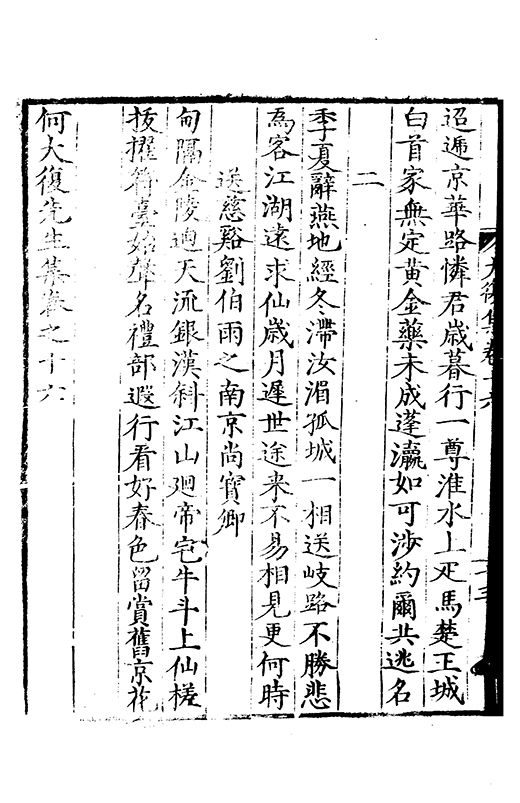 迢遞京華路憐君歲暮行一尊淮水上疋馬楚王城
白首家無定黃金藥未成蓬瀛如可涉約爾共逃名
二
季夏辭燕地經冬滯汝湄孤城一相送岐路不勝悲
為客江湖遠求仙歲月遲世途来不易相見更何時
送慈谿劉伯雨之南京尚寶卿
甸隔金陵逈天流銀漢斜江山廻帝宅牛斗上仙槎
拔擢符臺始聲名禮部遐行看好春色留賞舊京花
何大復先生集卷之十六